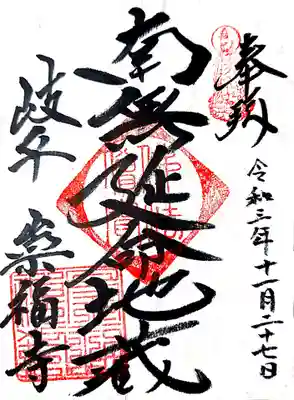 奉拝
令和三年十一月二十七日
南無延命地蔵
岐阜 崇福寺